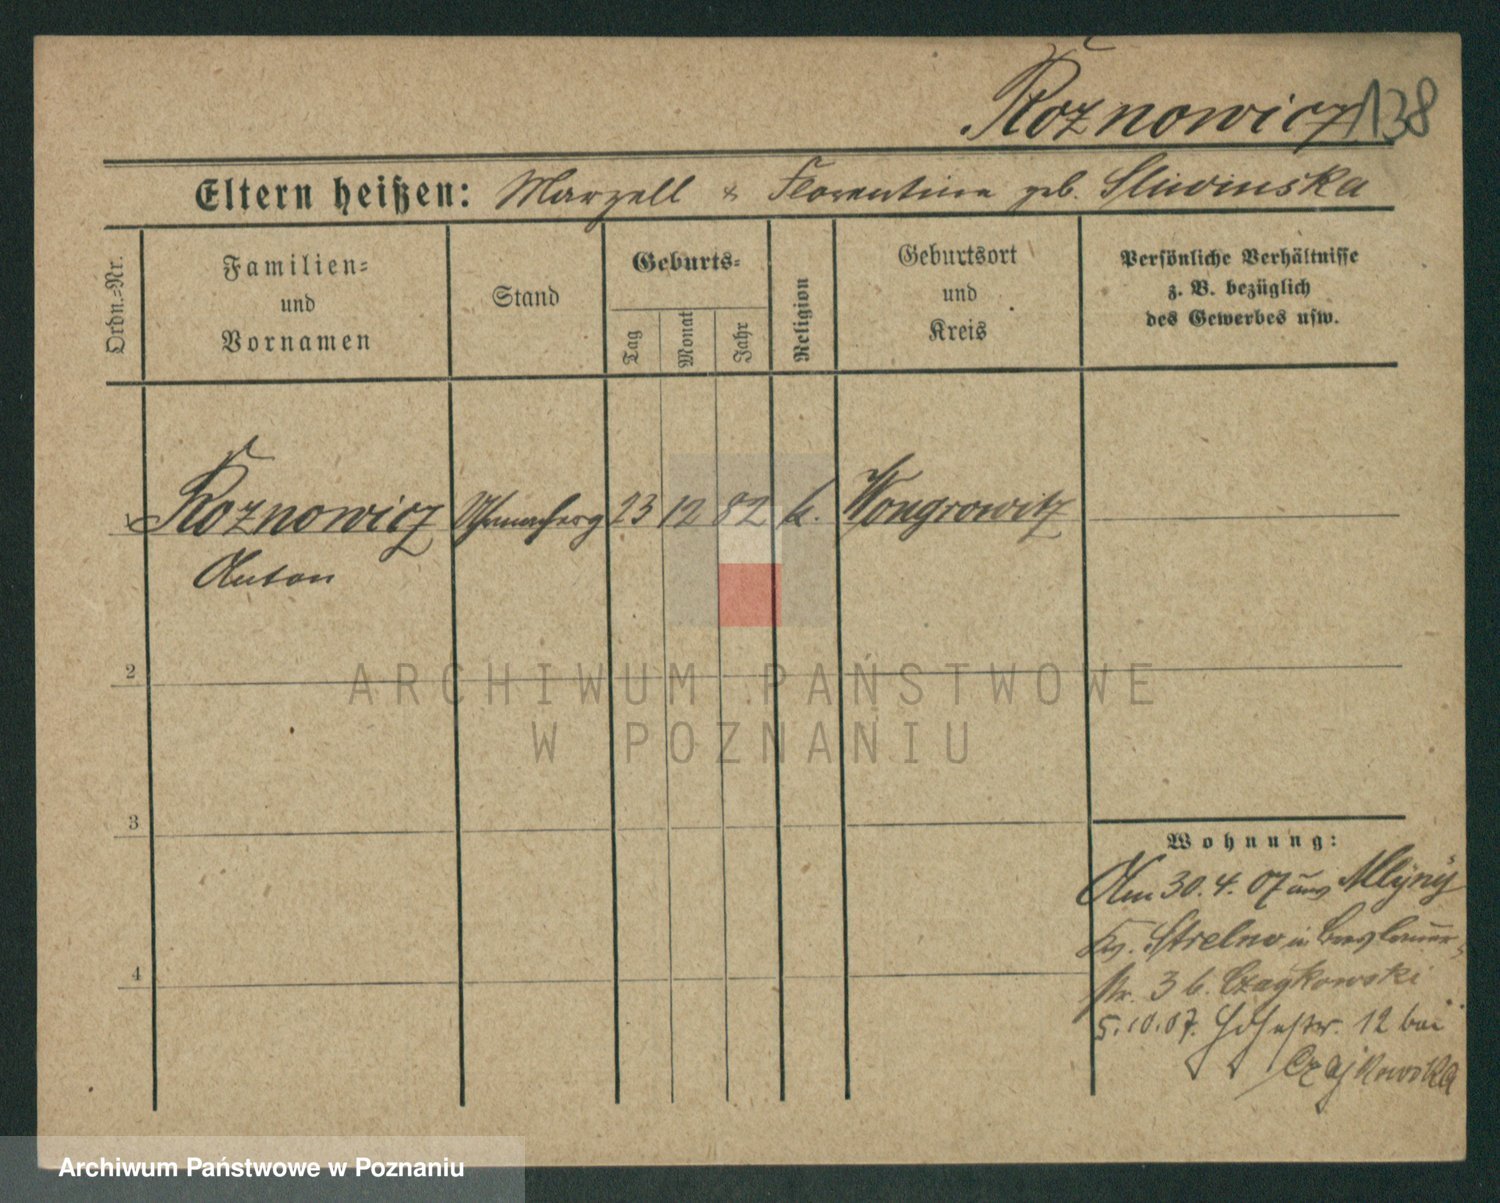 Roznowicz 138
Eltern heißen: Marzell & Florentine geb. Sliwinska
Ordn.-Nr.
Familien-
und
Vornamen
Stand
Geburts-
Tag
Monat
Jahr
Religion
Geburtsort
und
Kreis
Persönliche Verhältnisse
z. B. bezüglich
des Gewerbes usw.
Roznowicz 23 12 82 k. Wongrowitz
Anton
2
3
4
Wohnung:
Am 30.4.07 aus Mlyny
Kr. Strelno in Breslauer-
str. 3 b. Czaykowski
5.10.07. 12 bei
Czajkowska
ARCHIWUM PAŃSTWOWE
W POZNANIU
Archiwum Państwowe w Poznaniu